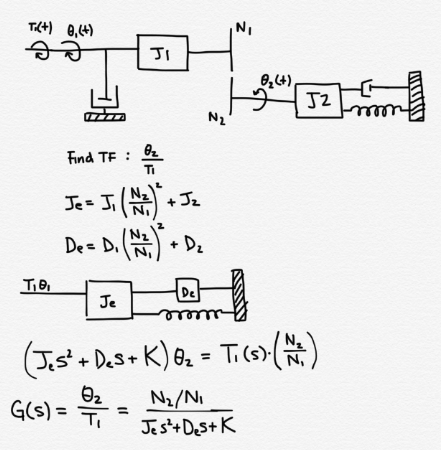 T₁(t) θ₁(t) J1 N₁
θ₂(t) J2
N₂
Find TF : θ₂/T₁
Je = J₁(N₂/N₁)² + J₂
De = D₁(N₂/N₁)² + D₂
T₁θ₁ Je De
(Jes² + Des + K)θ₂ = T₁(s)·(N₂/N₁)
G(s) = θ₂/T₁ = N₂/N₁ / Jes²+Des+K